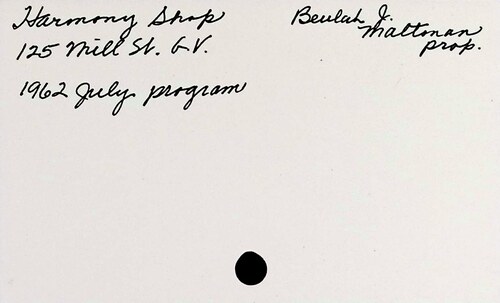 Harmony Shop
Beulah J.
Maltman
prop.
125 Mill St. G.V.
1962 July program